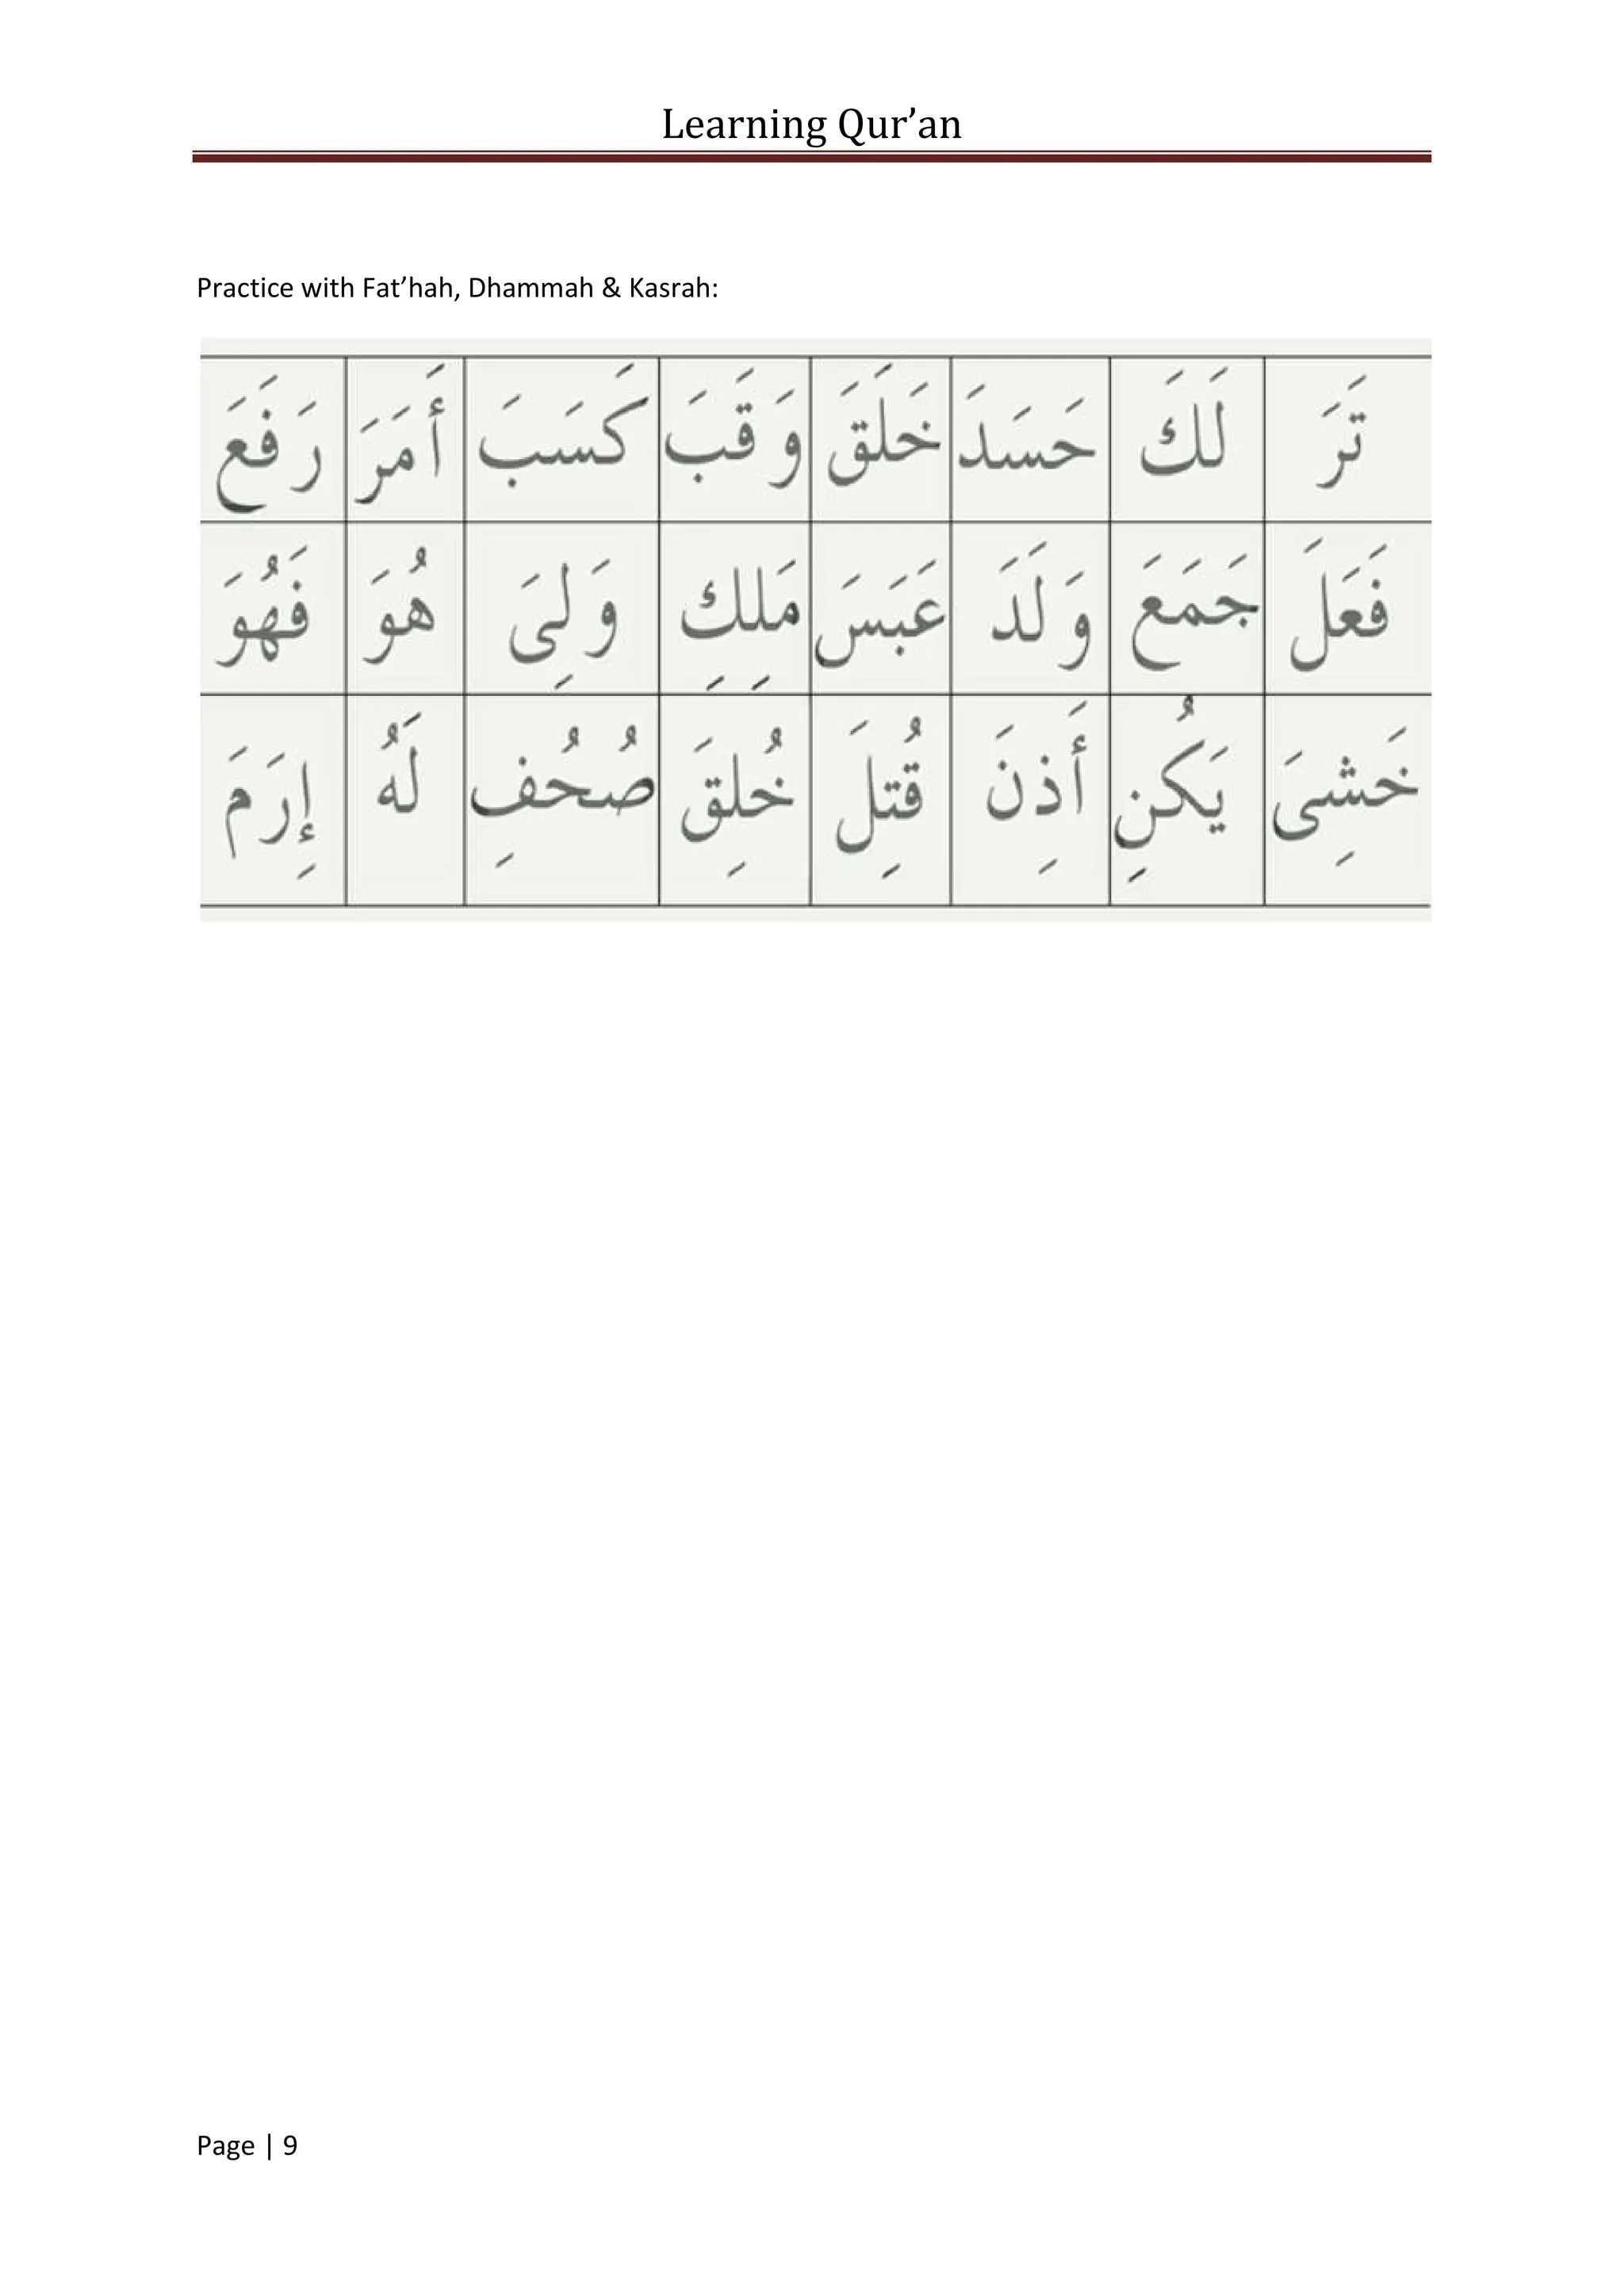 Learning Qur’an
Practice with Fat’hah, Dhammah & Kasrah:
تَرَ لَكَ حَسَدَ خَلَقَ وَقَبَ كَسَبَ أَمَرَ رَفَعَ
فَعَلَ جَمَعَ وَلَدَ عَبَسَ مَلِكِ وَلِىَ هُوَ فَهُوَ
خَشِىَ يَكُنِ أَذِنَ قُتِلَ خُلِقَ صُحُفِ لَهُ إِرَمَ
Page | 9